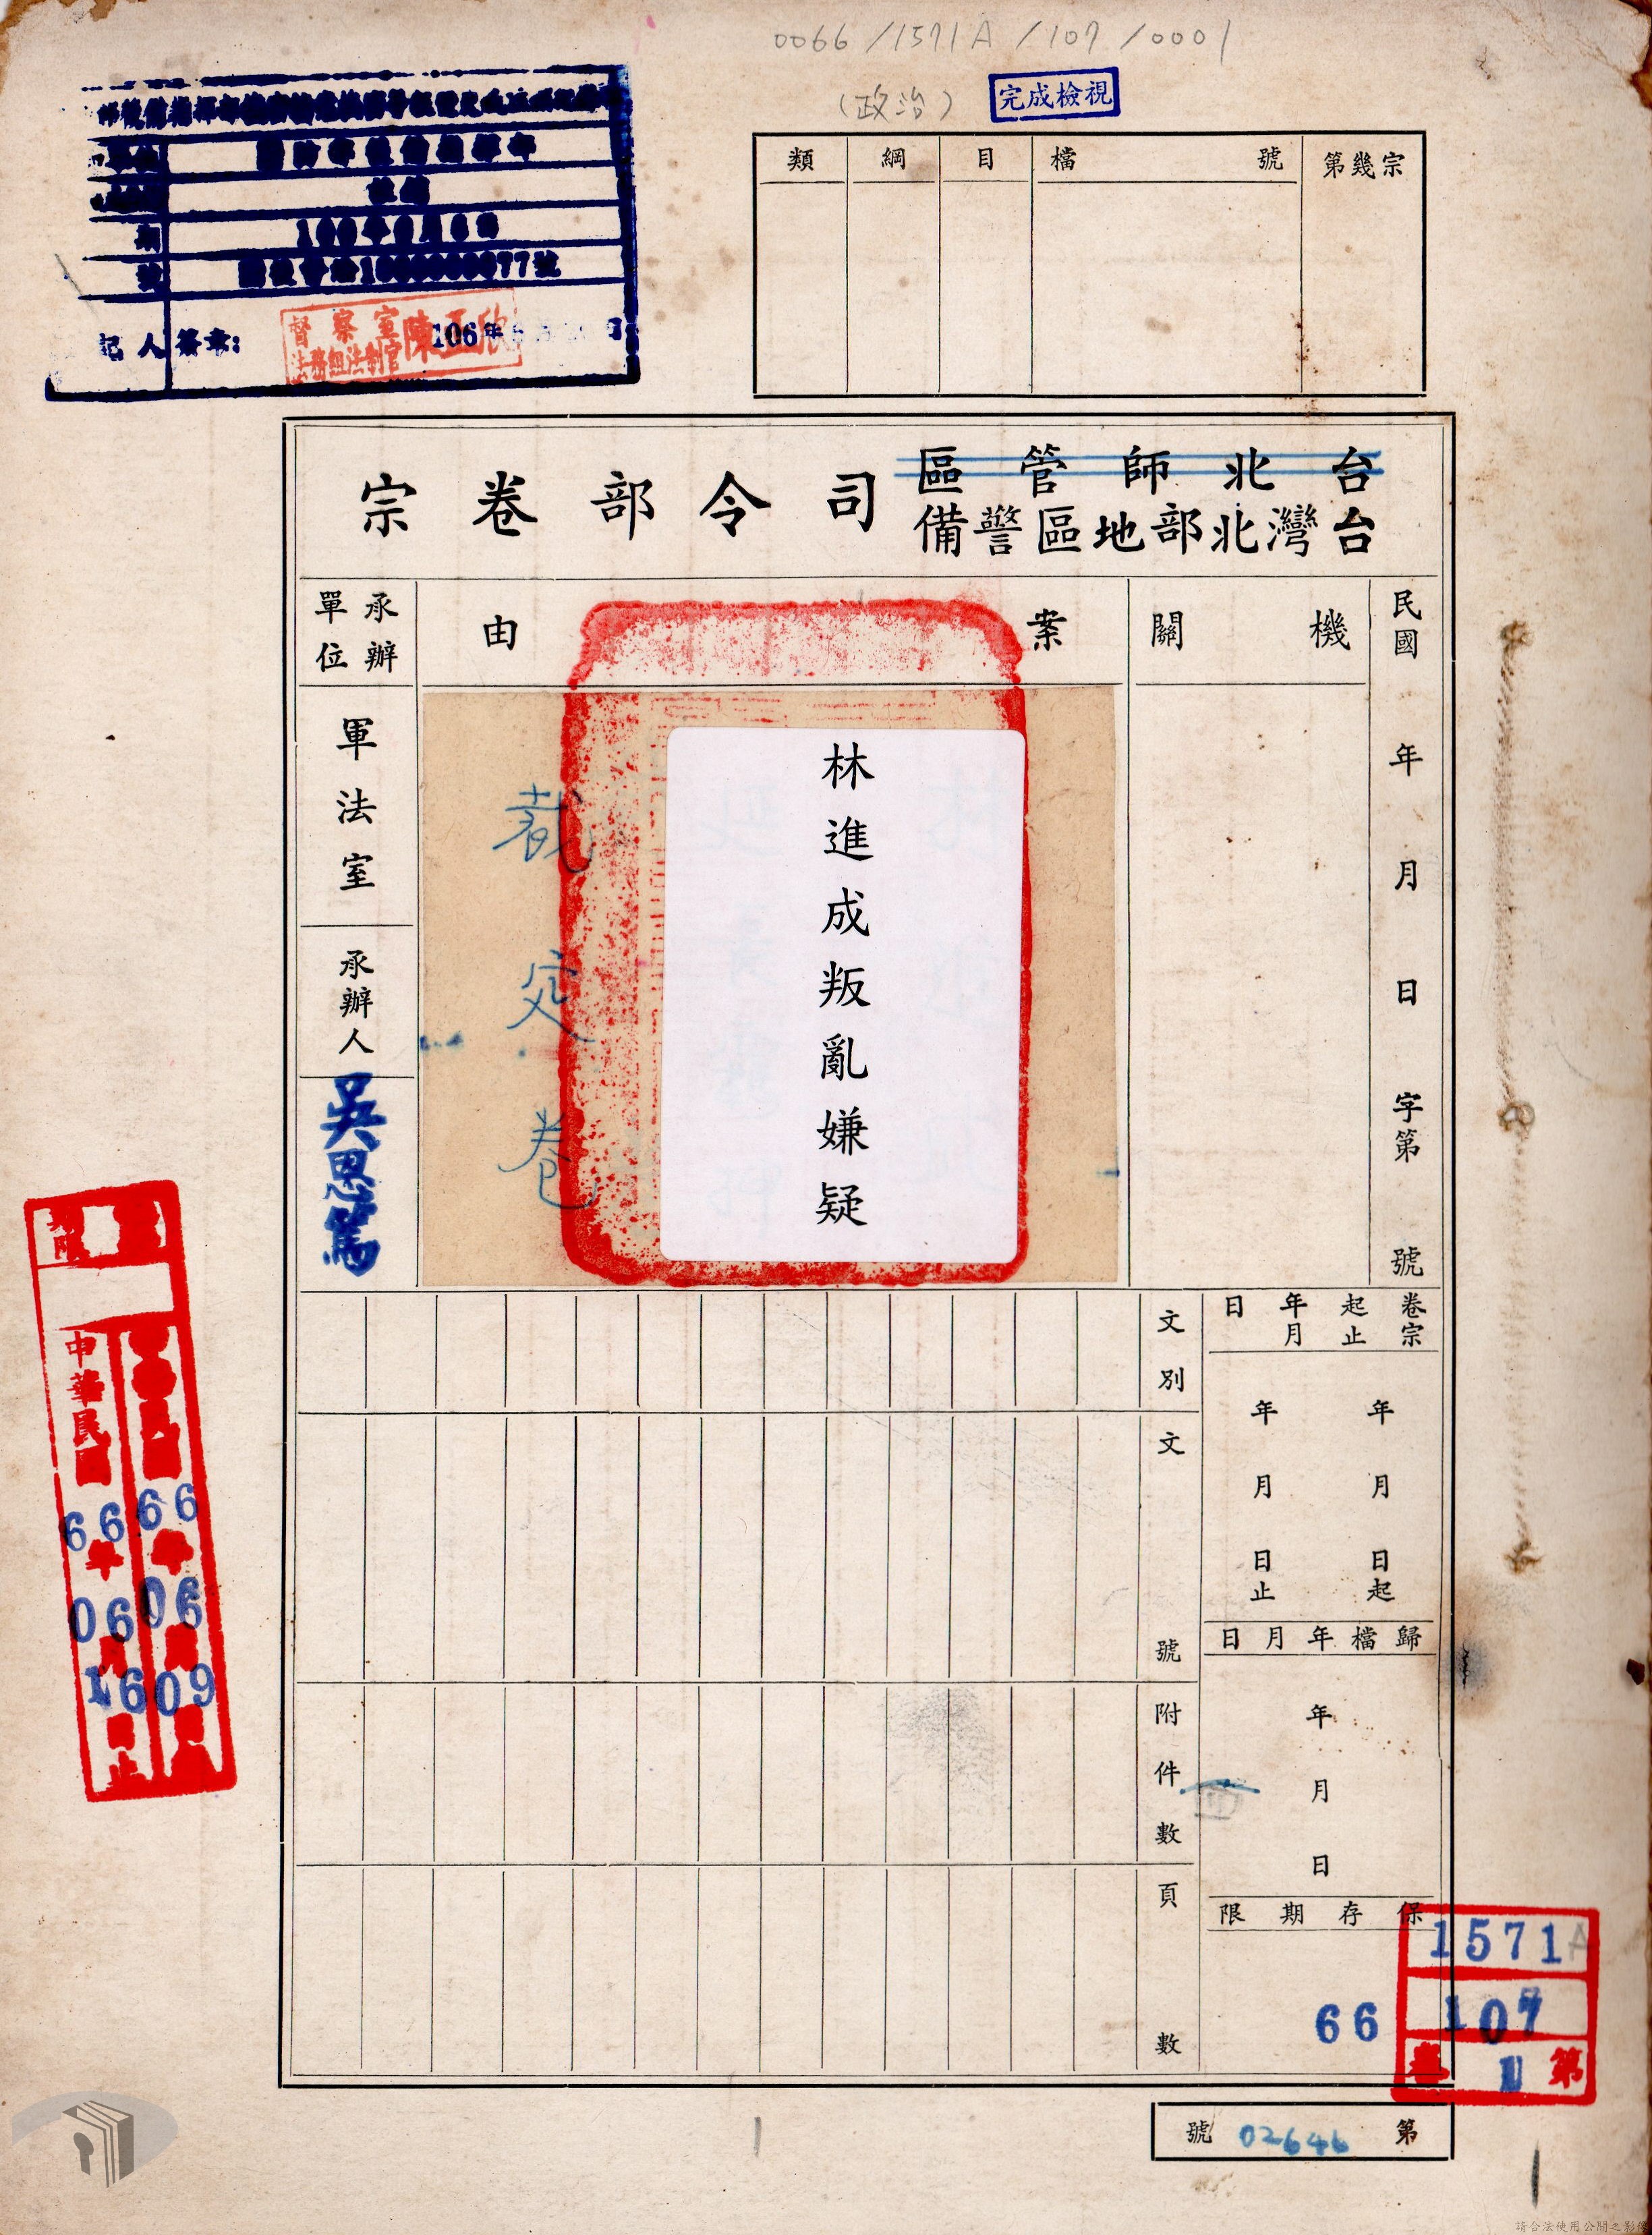 0066/1571A/107/0001
（政治）
完成檢視
類 綱 目 檔號 第幾宗
記人簽章:
督察室
法務組法制官
陳正欣
106年
台北師管區
台灣北部地區警備
司令部卷宗
民國 年 月 日 字第 號
機關
案由
林進成叛亂嫌疑
裁定卷
承辦單位
軍法室
承辦人
吳恩篤
卷宗起止年月日
年 月 日起
年 月 日止
歸檔年月日
年 月 日
保存期限
66
文別
文號
附件數
頁數
66年06月09日
中華民國66年06月16日止
1571A
107
第1卷
第02646號
請合法使用公開之影像